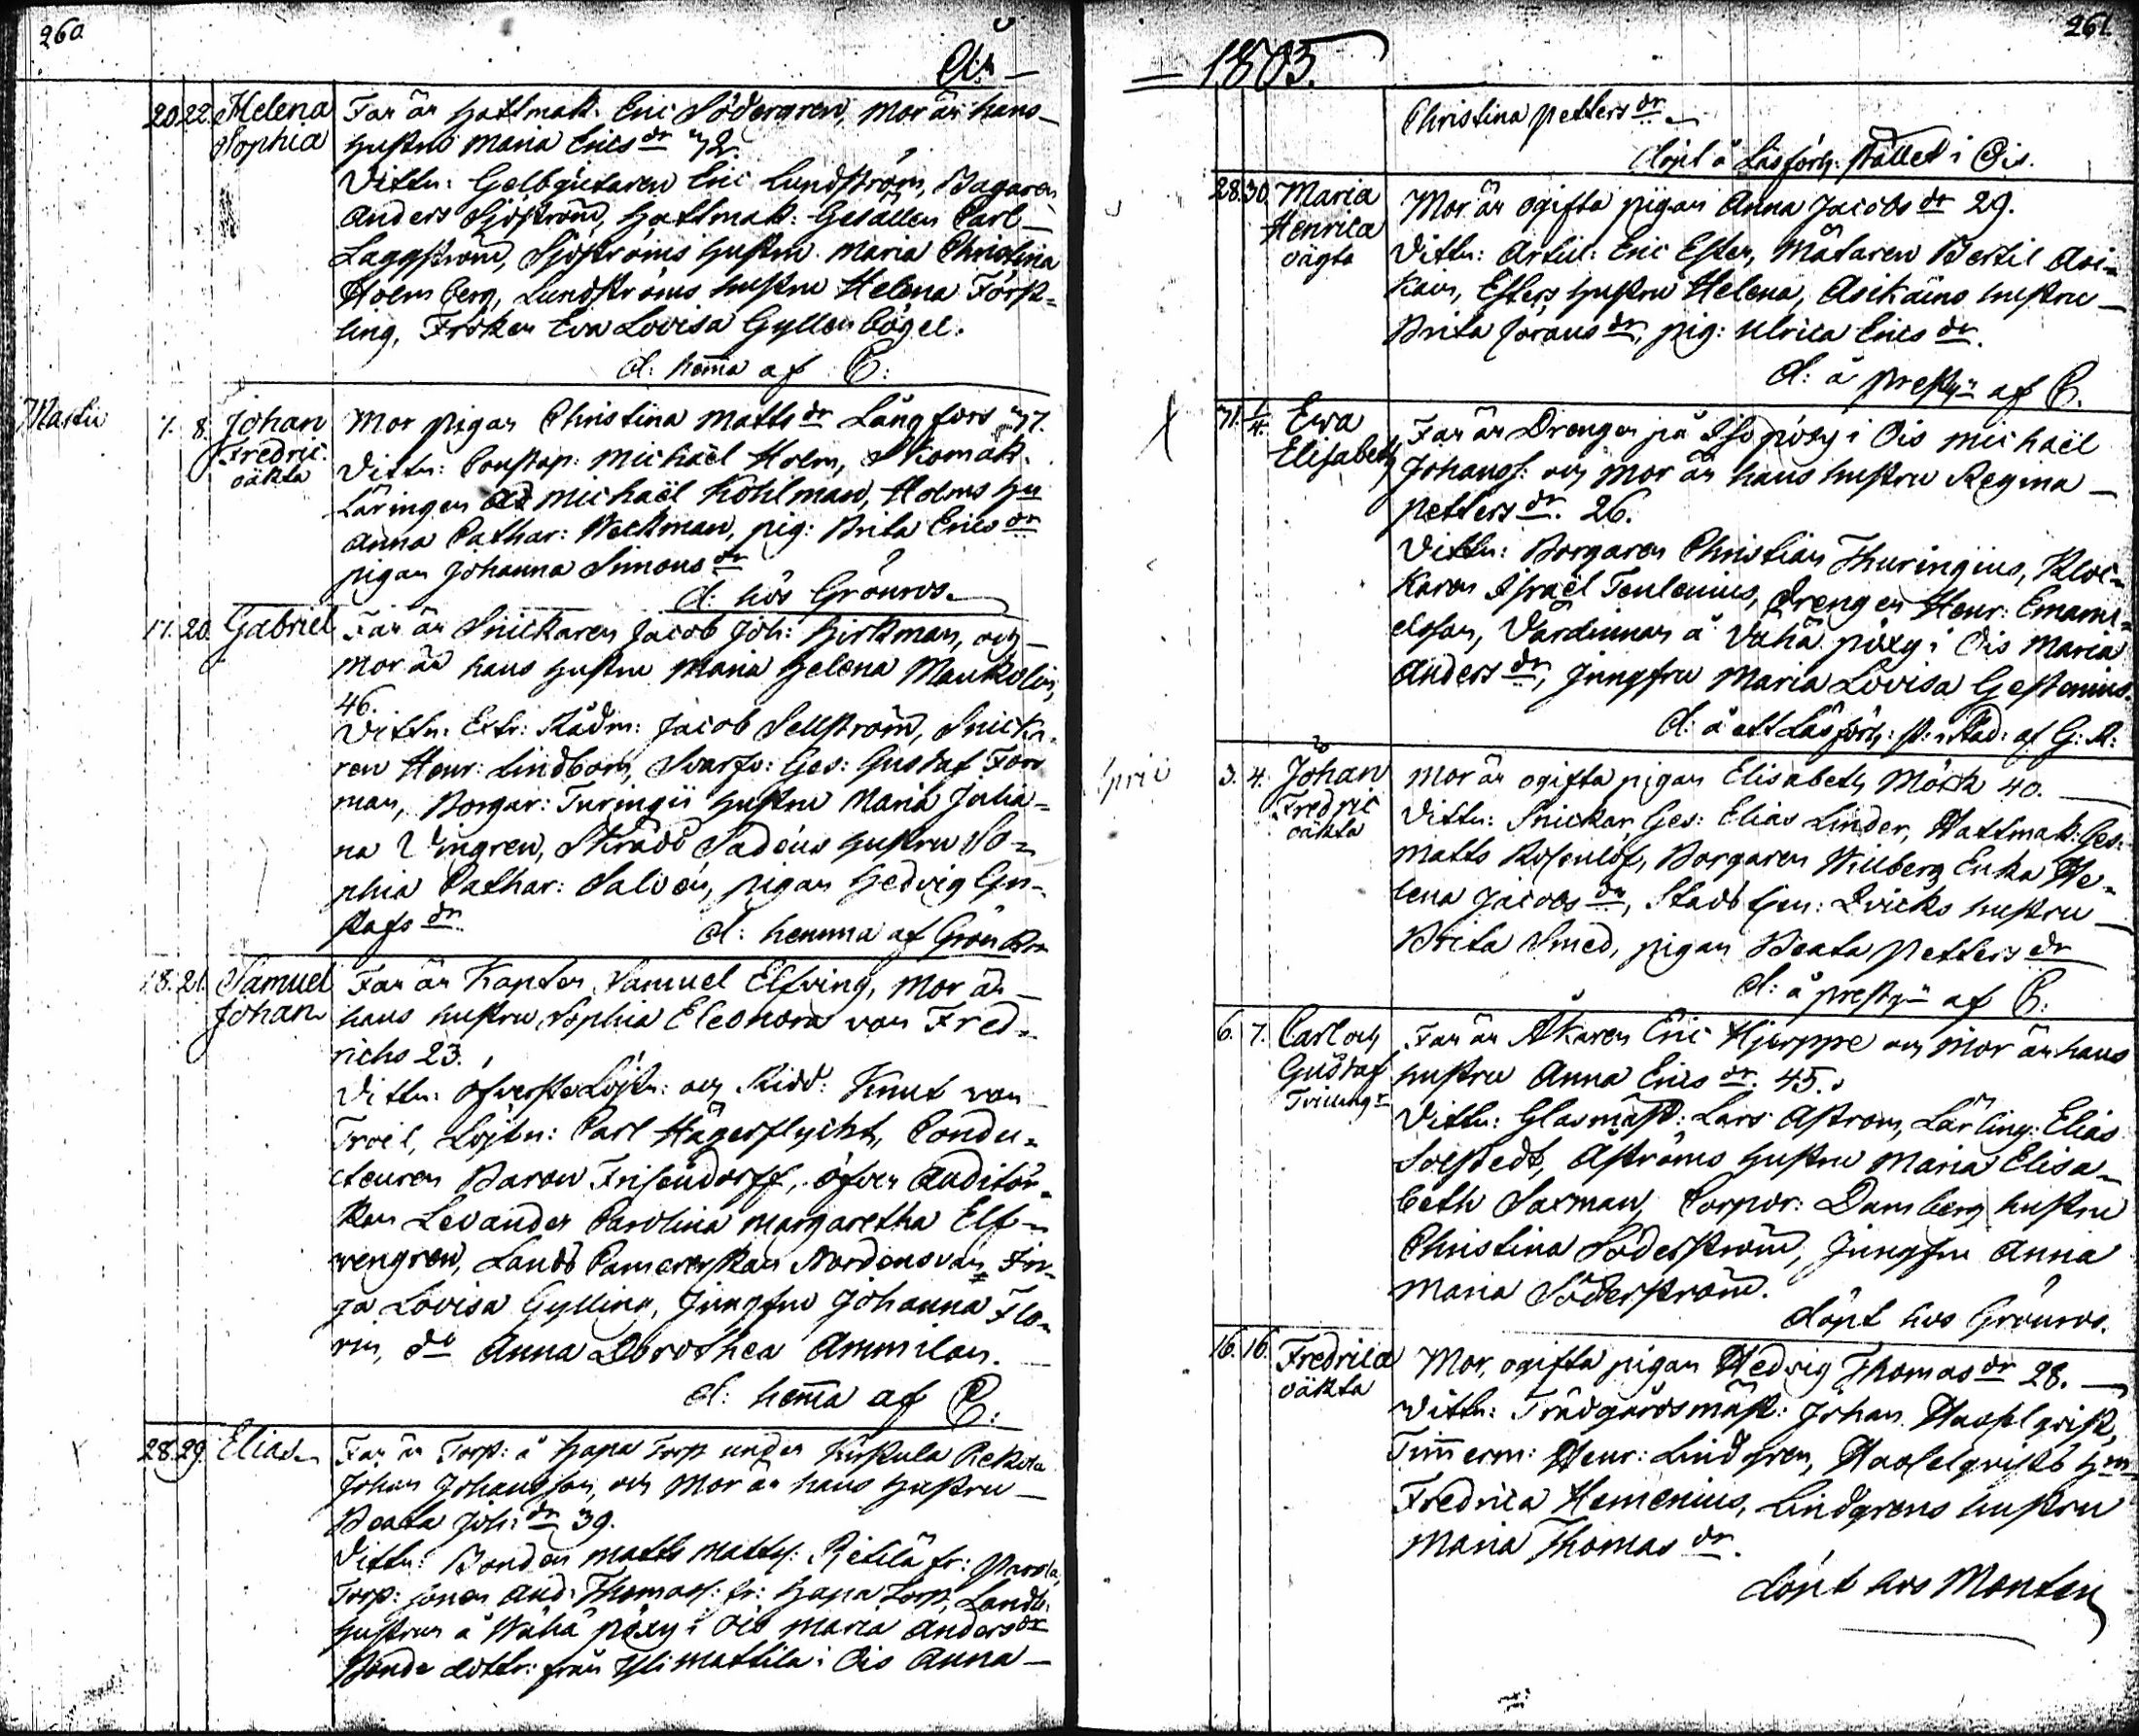 260
År
20. 22. Helena Sophia
Far är Hattmak. Eric Södergren, mor är hans
hustru Maria Erics dr 42.
Vittn: Gelbgiutaren Eric Lundström, Bagaren
Anders Sjöström, Hattmak: Gesällen Carl
Laggström, Sjöströms hustru Maria Christina
Holmberg, Lundströms hustru Helena Först=
ling, Fröken Eva Lovisa Gyllenbögel.
d: hemma af C:
Martii
7. 8. Johan Fredric oäkta
Mor pigan Christina Matts dr Långfors 47.
Vittn: Constap: Michaël Holm, Skomak.
Läringen Michaël Kohlman, Holms hu
Anna Cathar: Weckman, pig: Brita Erics dr
pigan Johanna Simons dr
d: hos Grönros.
17. 20. Gabriel
Far är Snickaren Jacob Joh: Hirkman, och
Mor är hans hustru Maria Helena Munkelin,
46.
Vittn. Extr: Rådm: Jacob Sellström, Snicka
ren Henr: Lindbom, Svarfv: Ges: Gustaf Fors
man, Borgar: Turingii hustru Maria Julia=
na Vingren, Skrädd Sadéns hustru So=
phia Cathar: Salvén, pigan Hedvig Gu=
stafs dr
d: hemma af Grönros
18. 21. Samuel Johan
Far är Kapten Samuel Elfving, Mor är
hans hustru Sophia Eleonora von Fred=
richs 23.
Vittn: öfverste Löjtn: och Ridd: Knut von
Troil, Löjtn: Carl Hägerflycht, Condu=
cteuren Baron Frisendorff, öfver Auditör=
skan Levander Carolina Margaretha Elf=
vengren, Lands Camererskan Nordensvan, Fru
ga Lovisa Gylling, Jungfru Johanna Flo=
rin, do Anna Dorothea Ammilon.
d: hemma af C:
28. 29. Elias
Far är Torp: å Hapa Torp under Kurkula Rekola
Johan Johansson, och Mor är hans hustru
Beata Joh: dr 39.
Vittn: Bonden Matts Matts: Rietilä fr: Parola,
Torp: sonen And: Thomas: fr: Hapa Torp, Landb:
hustrun å Wähä pöxy i Ois Maria Anders dr
Bonde dottr: från Ylimattila i Ois Anna
261.
= 1803.
Christina Petters dr
döpt å Läsförh: stället i Ois.
28. 30. Maria Henrica oägta
Mor är ogifta pigan Anna Jacobs dr 29.
Vittn: Artill: Eric Ester, Mätaren Bertil Asi=
kain, Esters hustru Helena, Asikains hustru
Brita Jörans dr, pig: Ulrica Erics dr.
d: å prestg:n af C.
31. 1/4. Ewa Elisabeth
Far är Drengen på Iso pöxy i Ois Michaël
Johans: och Mor är hans hustru Regina
Petters dr. 26.
Vittn: Borgaren Christian Thuringius, Kloc=
karen Israël Tenlenius, Drengen Henr: Emanu=
elsson, Värdinnan å Vähä pöxy i Ois Maria
Anders dr, Jungfru Maria Lovisa Gestenius.
d: å ett Läsförh: st: i Stad: af G: R:
April
3. 4. Johan Fredric oäkta
Mor är ogifta pigan Elisabeth Mörk 40.
Vittn: Snickar Ges: Elias Linder, Hattmak: Ges:
Matts Rosenlöf, Borgaren Willberg Enka He=
lena Jacobs dr, Stads Gev: Qvicks hustru
Brita Smed, pigan Beata Petters dr
d: å prestg:n af C:
6. 7. Carl och Gustaf Tvillingr
Far är Åkaren Eric Hjerppe och Mor är hans
hustru Anna Erics dr. 45.
Vittn: Glasmäst: Lars Åström, Lärling: Elias
Solstedt, Åströms hustru Maria Elisa=
beth Saxman, Corpor: Damberg hustru
Christina Söderström, Jungfru Anna
Maria Söderström.
döpt hos Grönros.
16. 16. Fredrica oäkta
Mor, ogifta pigan Hedvig Thomas dr 28.
Vittn: Trädgårdsmäst: Johan Hasselqvist,
Timmerm: Henr: Lindgren, Hasselqvists hu
Fredrica Hemenius, Lindgrens hustru
Maria Thomas dr.
döpt hos Monten